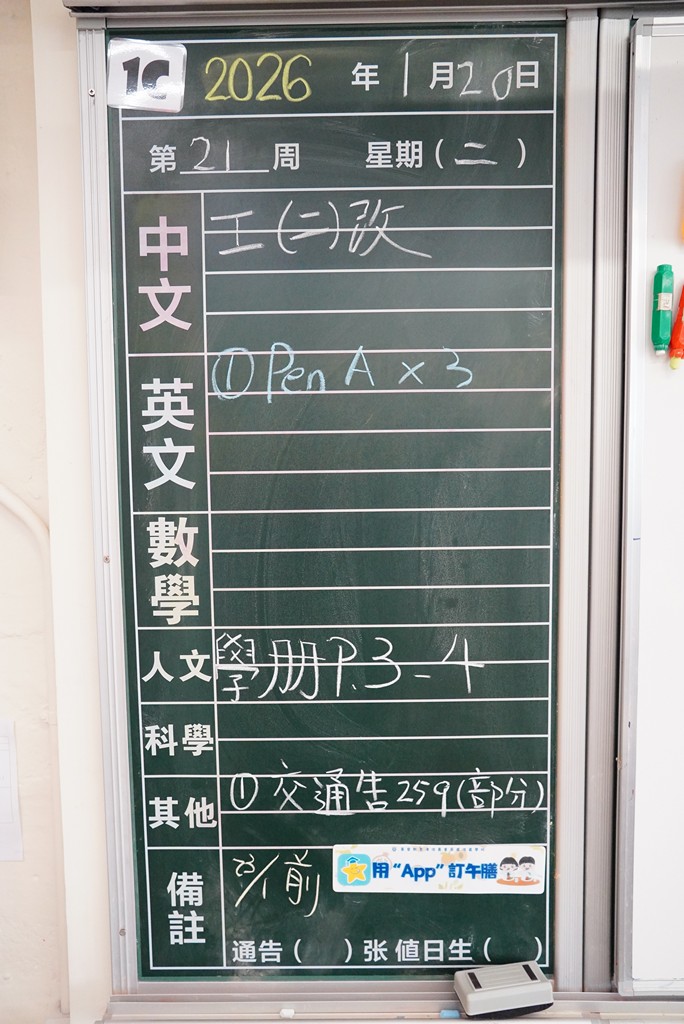 1C 2026 年 1 月 20 日
第 21 周 星期 (二)
中文
工(二)改
英文
① Pen A × 3
數學
人文
學册 P.3-4
科學
其他
① 交通告259(部分)
備註
23/1前
用“App”訂午膳
通告( )张 值日生( )